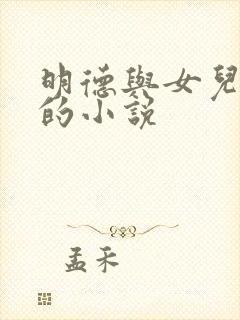 明德與女兒
的小說
孟禾